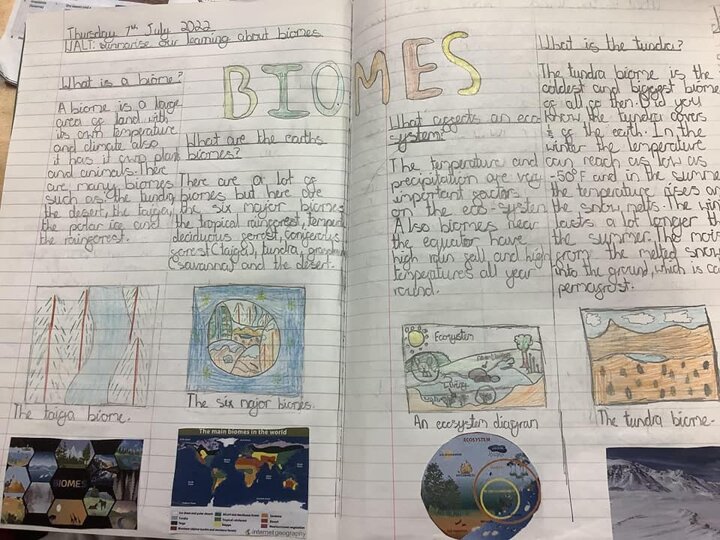 Thursday 7th July 2022
WALT: summarise our learning about biomes
BIOMES
What is a biome?
A biome is a large
area of land with
its own temperature
and climate also
it has it own plants
and animals. There
are many biomes
such as the tundra,
the desert, the taiga,
the polar ice and
the rainforest.
What are the earths
biomes?
There are a lot of
biomes but here are
the six major biomes
the tropical rainforest, temperate
deciduous forest, coniferous
forest (taiga), tundra, grassland
(savanna) and the desert.
The taiga biome.
The six major biomes.
BIOMES
The main biomes in the world
Tundra
Taiga
Tropical rainforest
Steppe
Savanna
Desert
internetgeography
What affects an eco-
system?
The temperature and
precipitation are very
important factors
on the eco-system
Also biomes near
the equator have
high rain fall and high
temperatures all year
round.
Ecosystem
Living
An ecosystem diagram
ECOSYSTEM
What is the tundra?
The tundra biome is the
coldest and biggest biome
of all of then. Did you
know the tundra covers
of the earth. In the
winter the temperature
can reach as low as
-50°F and in the summer
the temperature rises and
the snow melts. The
lasts a lot longer
the summer. The
from the melted snow
into the ground, which is
permafrost.
The tundra biome.